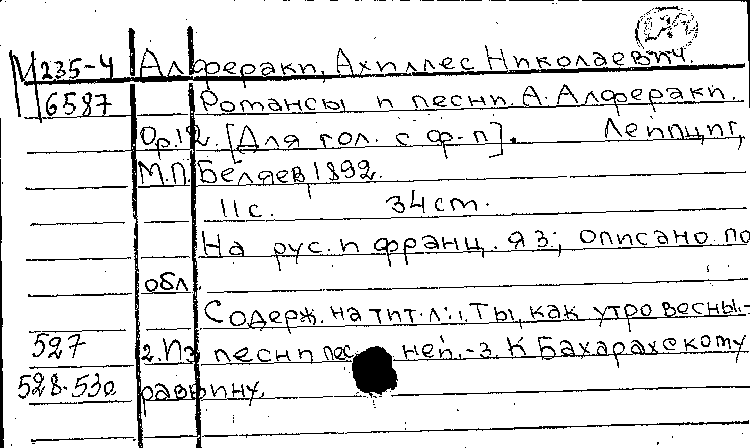 М235-4 Алфераки, Ахиллес Николаевич.
6587 Романсы и песни А. Алфераки.
Op.12. [Для гол. с ф-п]. Лейпциг,
М.П. Беляев, 1892.
11 с. 34 см.
На рус. и франц. яз; описано по
обл.
Содерж. на тит. л: 1. Ты, как утро весны.-
527 2. Из песни пес ней.-3. К Бахарахскому
528-530 раввину.